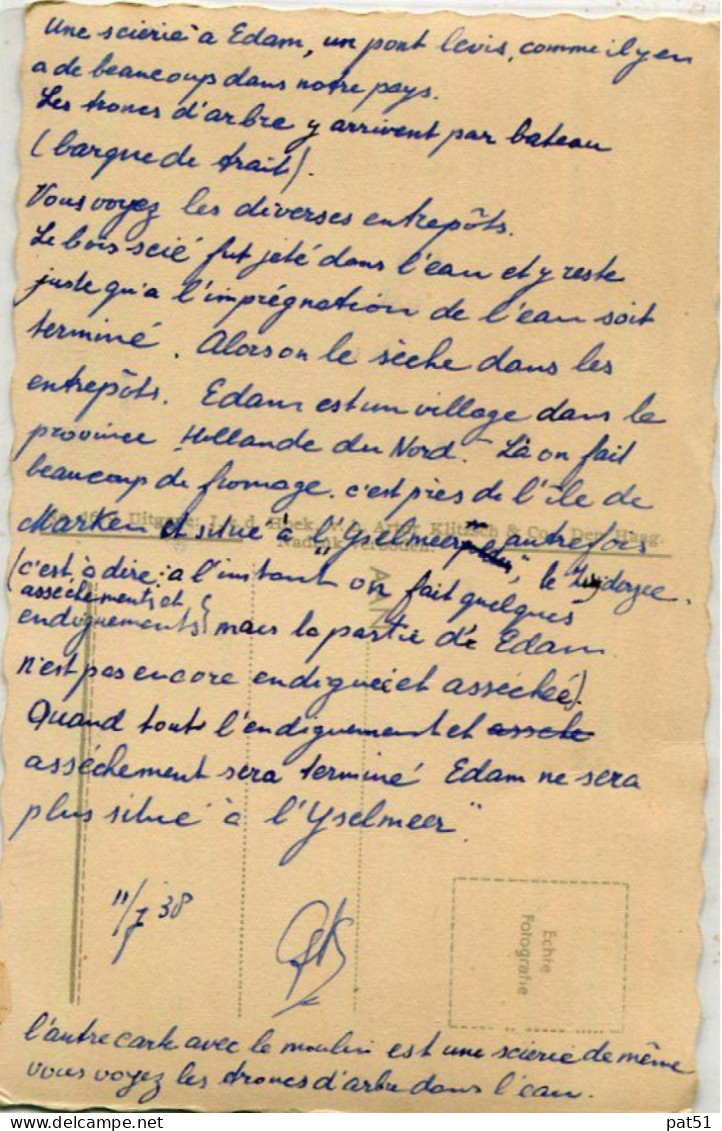 Une scierie à Edam, un pont levis, comme il y en
a de beaucoup dans notre pays.
Les troncs d'arbre y arrivent par bateau
(barque de trait).
Vous voyez les diverses entrepôts.
Le bois scié fut jeté dans l'eau et y reste
juste qu'a l'imprégnation de l'eau soit
terminé. Alors on le sèche dans les
entrepôts. Edam est un village dans la
province "Hollande du Nord." Là on fait
beaucoup de fromage. c'est près de l'île de
Uitgave: J. v. d. Hoek
Artur Klitzsch & Co., Den Haag.
Marken et situé à "l'Yselmeer", autrefois
Nadruk verboden.
(c'est à dire: a l'instant on fait quelques le Zuyderzee.
asséchements et
endiguements) mais la partie de Edam
AAN
n'est pas encore endiguée et asséchée).
Quand tout l'endiguement et assche
asséchement sera terminé Edam ne sera
plus situé à l'Yselmeer"
11/7 38
Echte
Fotografie
l'autre carte avec le moulin est une scierie de même
vous voyez les troncs d'arbre dans l'eau.
pat51